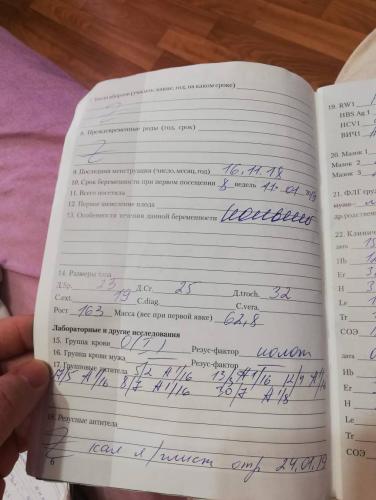 7. Число абортов (указать, какие, год, на каком сроке)
8. Преждевременные роды (год, срок)
9. Последняя менструация (число, месяц, год) 16.11.18
10. Срок беременности при первом посещении 8 недель 11.01
11. Всего посетила
12. Первое шевеление плода
13. Особенности течения данной беременности
14. Размеры таза
D.Sp. 23 Д.Cr. 25 Д.troch. 32
C.ext. 19 C.diag. C.vera.
Рост 163 Масса (вес при первой явке) 62,8
Лабораторные и другие исследования
15. Группа крови O(I) Резус-фактор
16. Группа крови мужа Резус-фактор
17. Групповые антитела 5/2 А 1/16
8/7 А 1/16 А 1/8
18. Резусные антитела
кал я/глист отр 24.01.19
6
19. RW1
HBS Ag 1
HCV1
ВИЧ1
20. Мазок 1
Мазок 2
Мазок 3
21. ФЛГ
22.
дата
Hb
Er
H
Le
Tr
СОЭ
дата
Hb
Er
H
Le
Tr
СОЭ